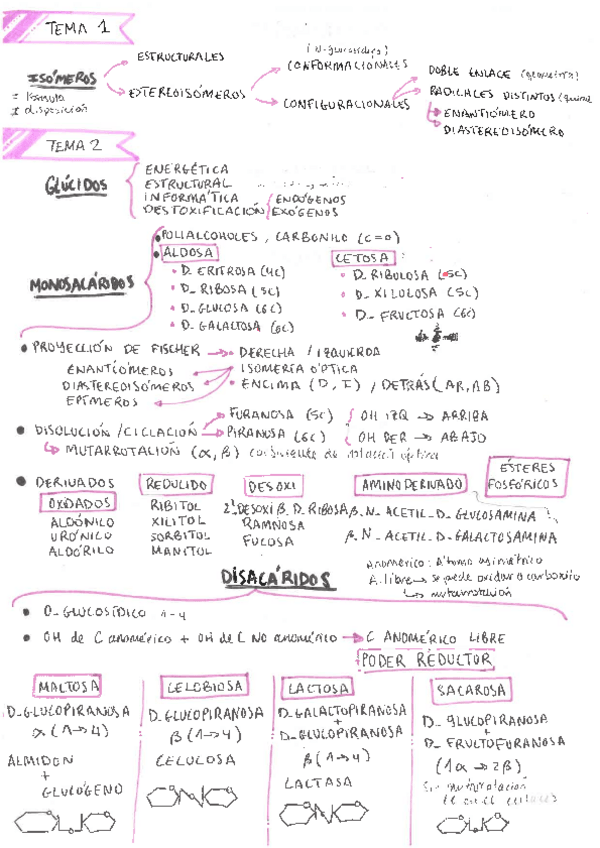 TEMA 1
ISÓMEROS
= fórmula
≠ disposición
ESTRUCTURALES
ESTEREOISÓMEROS
CONFORMACIONALES
CONFIGURACIONALES
DOBLE ENLACE (geometría)
RADICALES DISTINTOS
ENANTIÓMERO
DIASTEREOISÓMERO
TEMA 2
GLÚCIDOS
ENERGÉTICA
ESTRUCTURAL
INFORMÁTICA
DESTOXIFICACIÓN
ENDÓGENOS
EXÓGENOS
MONOSACÁRIDOS
• POLIALCOHOLES, CARBONILO (C=O)
• ALDOSA
• D_ ERITROSA (4C)
• D_ RIBOSA (5C)
• D_ GLUCOSA (6C)
• D_ GALACTOSA (6C)
CETOSA
• D_ RIBULOSA (5C)
• D_ XILULOSA (5C)
• D_ FRUCTOSA (6C)
• PROYECCIÓN DE FISCHER → • DERECHA / IZQUIERDA
ENANTIÓMEROS • ISOMERÍA ÓPTICA
DIASTEREOISÓMEROS • ENCIMA (D, I) / DETRÁS (AR, AB)
EPÍMEROS
• DISOLUCIÓN / CICLACIÓN
→ FURANOSA (5C) { OH IZQ → ARRIBA
→ PIRANOSA (6C) { OH DER → ABAJO
↳ MUTARROTACIÓN (α, β) de rotación óptica
• DERIVADOS
OXIDADOS
ALDÓNILO
URÓNICO
ALDÓRILO
REDUCIDO
RIBITOL
XILITOL
SORBITOL
MANITOL
DESOXI
2' DESOXI β_ D_ RIBOSA
RAMNOSA
FUCOSA
AMINO DERIVADO
β_ N_ ACETIL_ D_ GLUCOSAMINA
β_ N_ ACETIL_ D_ GALACTOSAMINA
ÉSTERES
FOSFÓRICOS
Anomérico: Átomo asimétrico
A. libre → se puede oxidar o carbonilo
↳ mutarrotación
DISACÁRIDOS
• O_ GLUCOSÍDICO
• OH de C anomérico + OH de C NO anomérico → C ANOMÉRICO LIBRE
PODER REDUCTOR
MALTOSA
D_GLUCOPIRANOSA
α (1→4)
ALMIDON
+
GLUCÓGENO
CELOBIOSA
D_GLUCOPIRANOSA
β (1→4)
CELULOSA
LACTOSA
D_GALACTOPIRANOSA
+
D_GLUCOPIRANOSA
β (1→4)
LACTASA
SACAROSA
D_ GLUCOPIRANOSA
+
D_ FRUCTOFURANOSA
(1α → 2β)
Sin mutarrotación